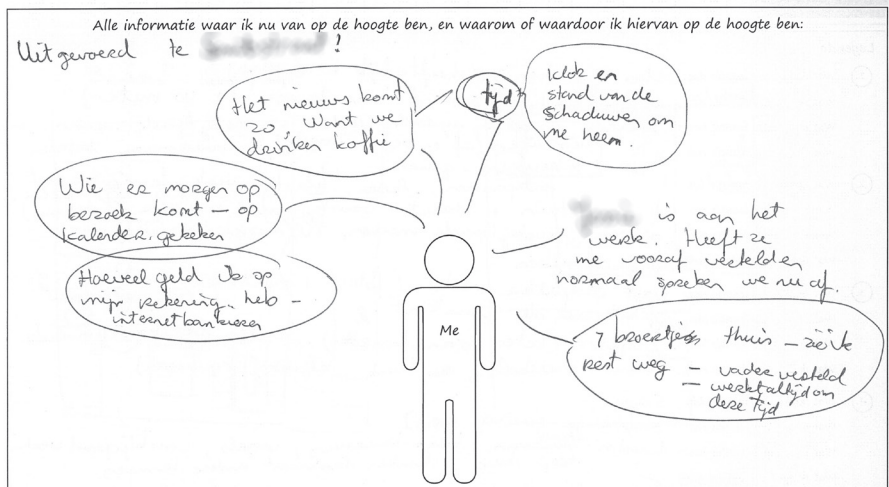 Alle informatie waar ik nu van op de hoogte ben, en waarom of waardoor ik hiervan op de hoogte ben:
Uitgevoerd te !
Het nieuws komt
zo, want we
drinken koffie
tijd
klok en
stand van de
schaduwen om
me heen.
Wie er morgen op
bezoek komt – op
kalender gekeken
Hoeveel geld ik op
mijn rekening heb –
internetbankieren
is aan het
werk. Heeft ze
me vooraf verteld en
normaal spreken we nu af.
Me
broertjes thuis – zie ik
rest weg – vader verteld
– werkt altijd om
deze tijd